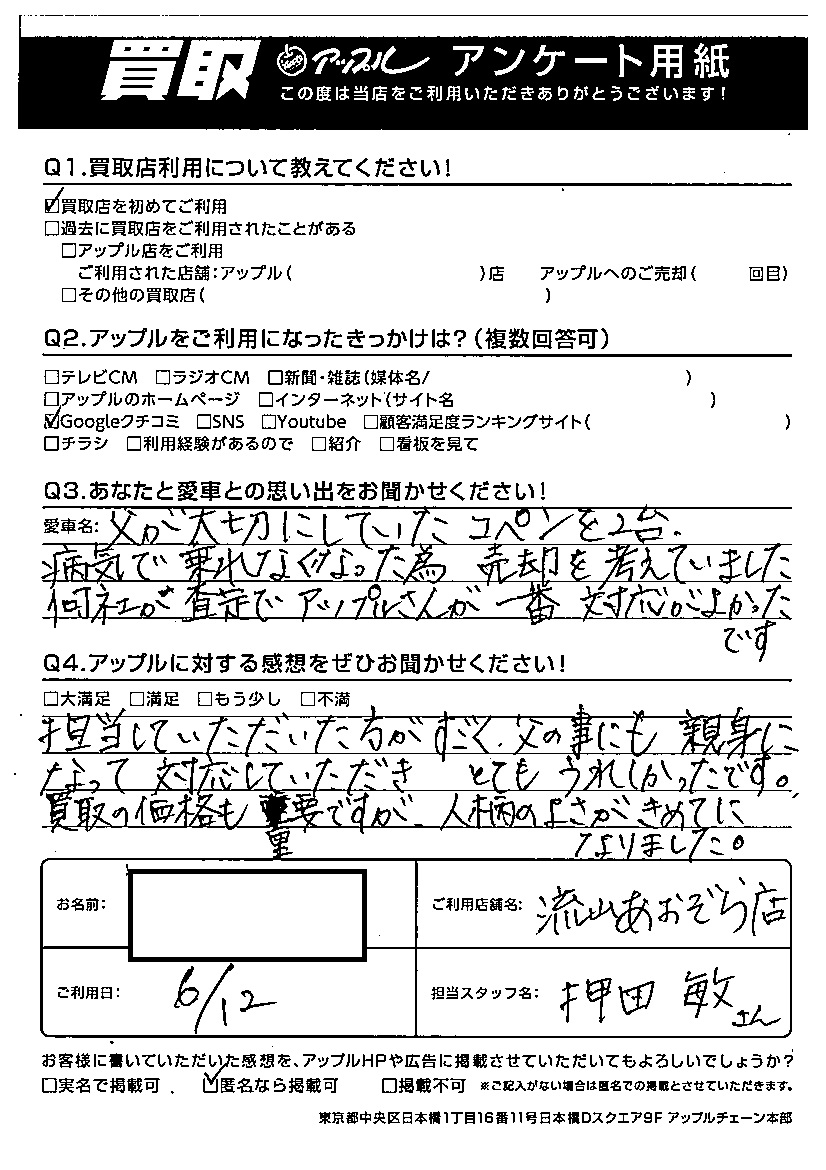 買取 アップル アンケート用紙
この度は当店をご利用いただきありがとうございます!
Q1.買取店利用について教えてください!
☑買取店を初めてご利用
□過去に買取店をご利用されたことがある
□アップル店をご利用
ご利用された店舗:アップル( )店 アップルへのご売却( 回目)
□その他の買取店( )
Q2.アップルをご利用になったきっかけは?(複数回答可)
□テレビCM □ラジオCM □新聞・雑誌(媒体名/ )
□アップルのホームページ □インターネット(サイト名 )
☑Googleクチコミ □SNS □Youtube □顧客満足度ランキングサイト( )
□チラシ □利用経験があるので □紹介 □看板を見て
Q3.あなたと愛車との思い出をお聞かせください!
愛車名: 父が大切にしていたコペンを2台.
病気で乗れなくなった為 売却を考えていました
何社か査定でアップルさんが一番対応がよかった
です
Q4.アップルに対する感想をぜひお聞かせください!
□大満足 □満足 □もう少し □不満
担当していただいた方がすごく、父の事にも親身に
なって対応していただき とてもうれしかったです。
買取の価格も重要ですが、人柄のよさがきめてに
重
なりました。
お名前: ご利用店舗名: 流山あおぞら店
ご利用日: 6/12 担当スタッフ名: 押田 敏さん
お客様に書いていただいた感想を、アップルHPや広告に掲載させていただいてもよろしいでしょうか?
□実名で掲載可 ☑匿名なら掲載可 □掲載不可 ※ご記入がない場合は匿名での掲載とさせていただきます。
東京都中央区日本橋1丁目16番11号日本橋Dスクエア9F アップルチェーン本部